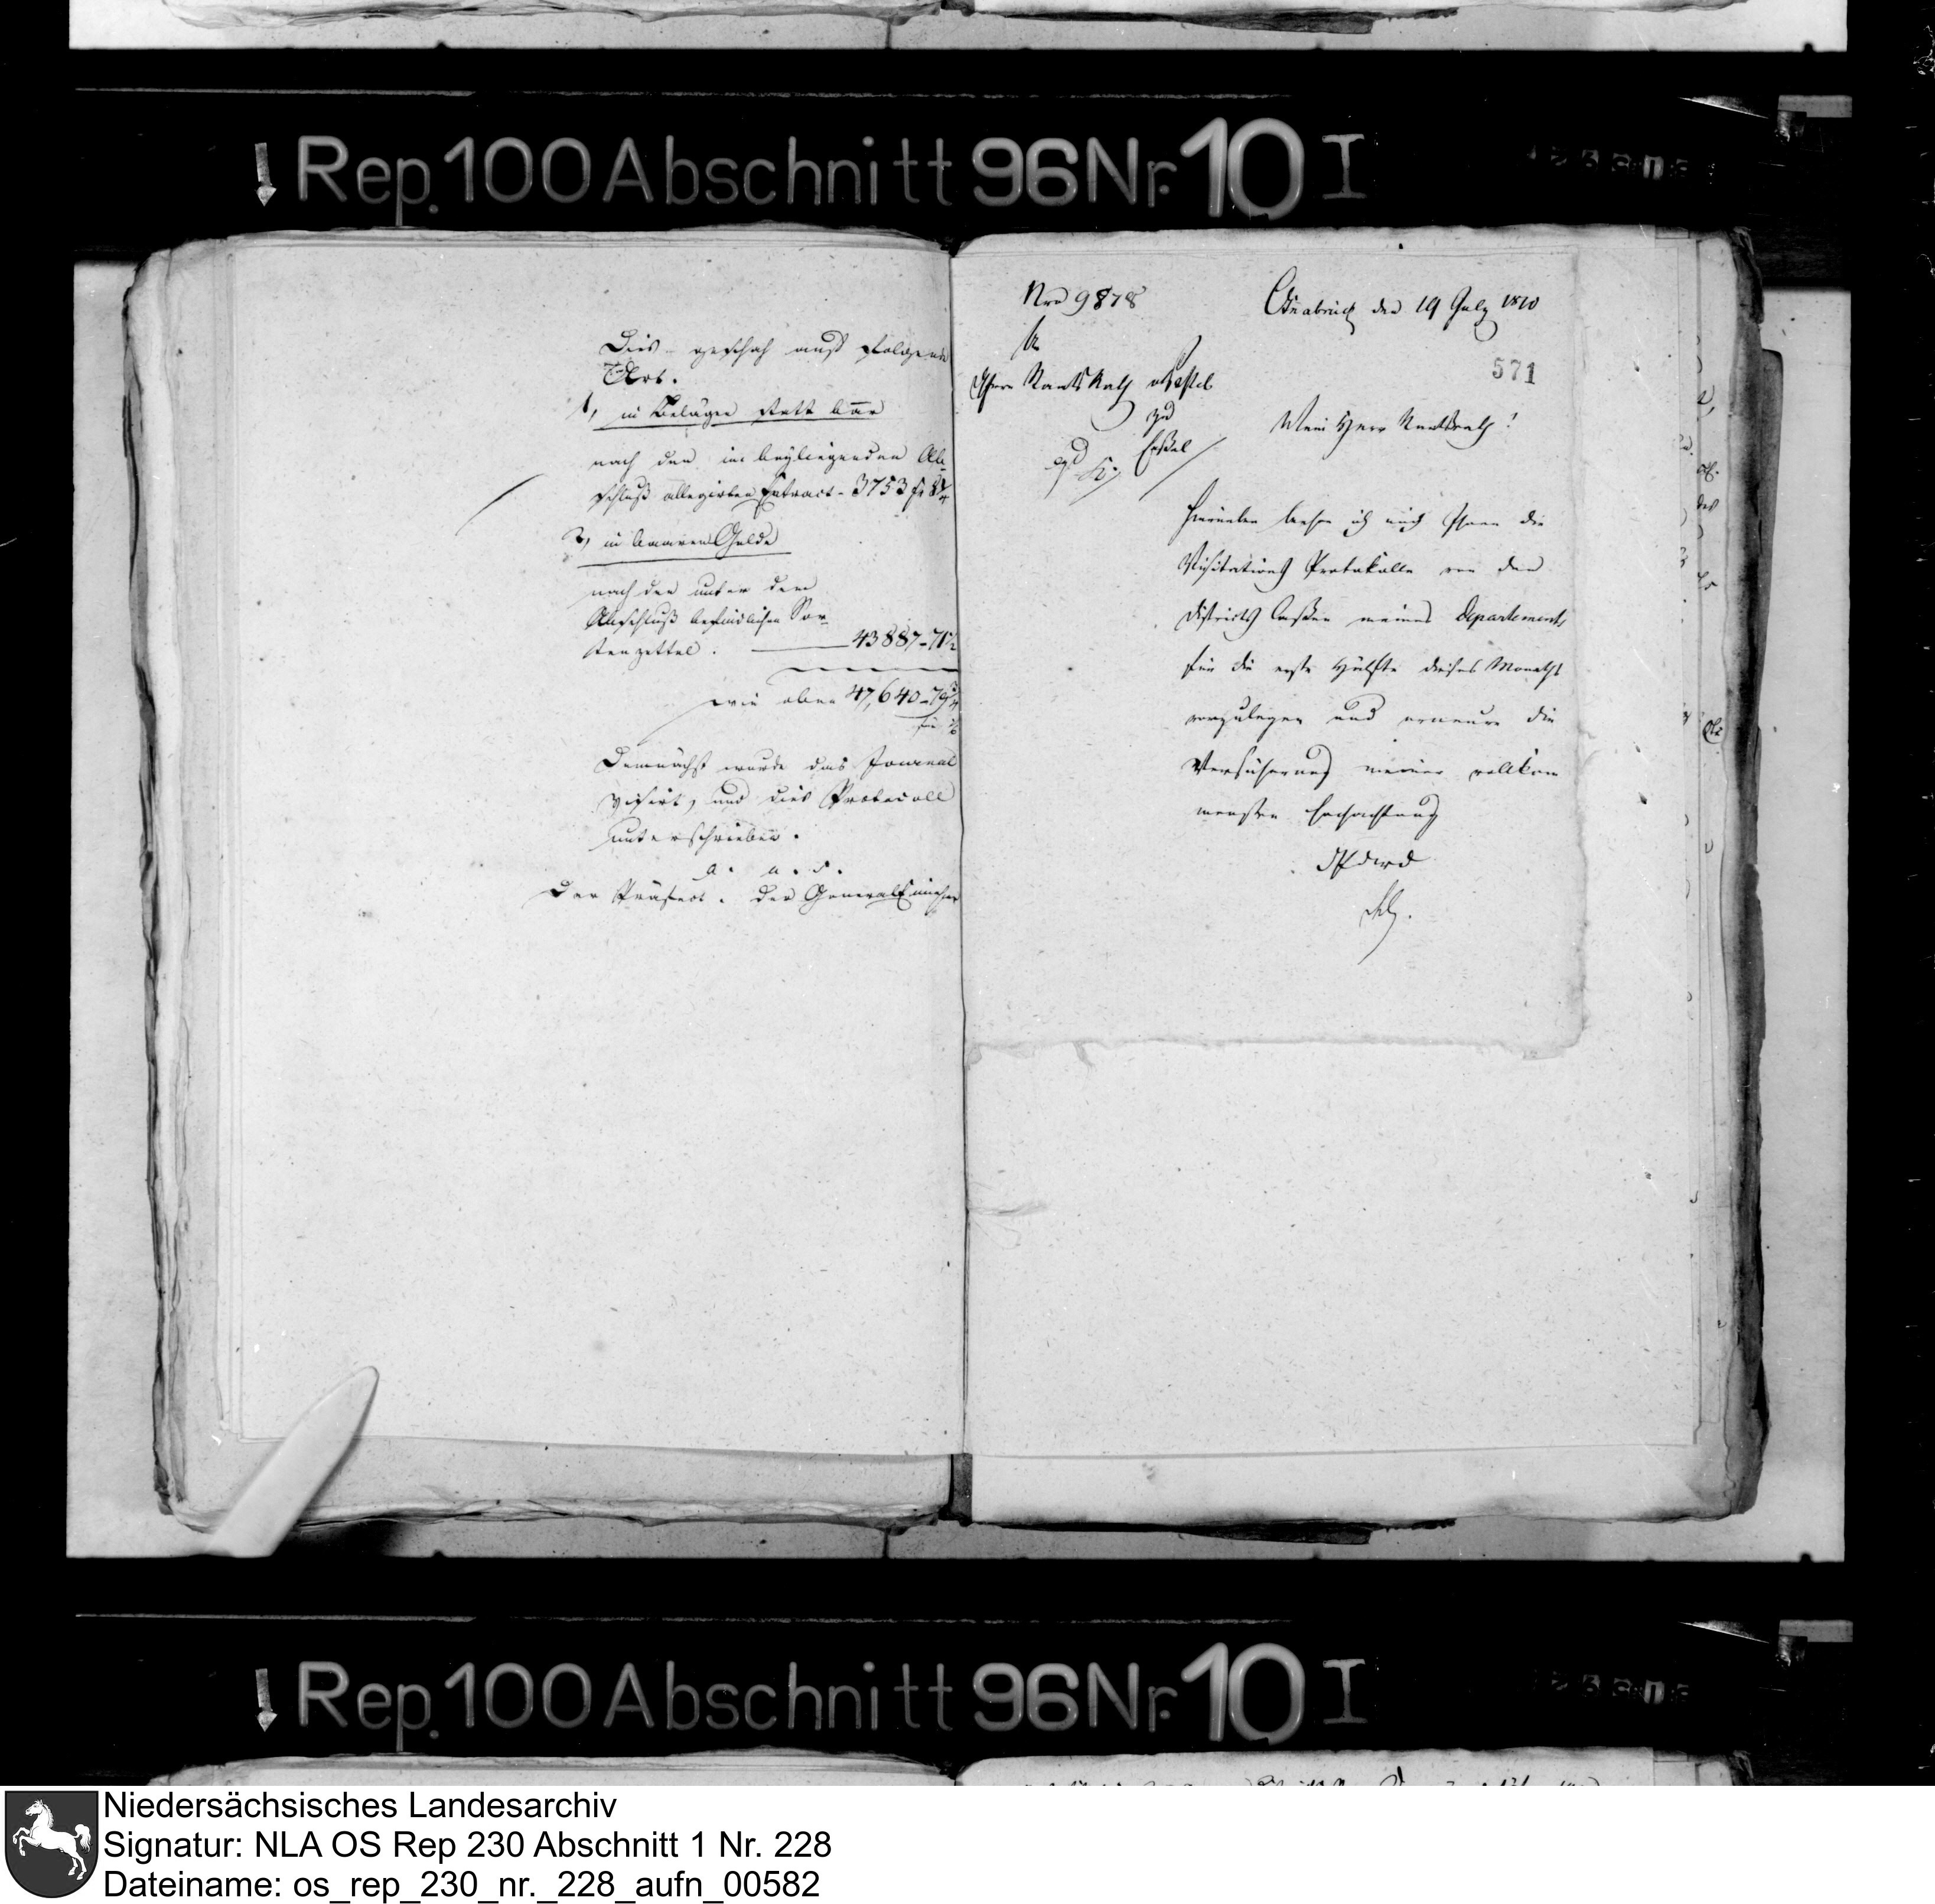 Rep. 100 Abschnitt 96 Nr. 10 I
Dies geschah auf folgende
Art.
1, in Belägen statt baar
nach den im beyliegenden Ab-
schluß allegirten Extract - 3753 fr 8¼
2, in baarem Gelde
nach den unter dem
Abschluß befindlichen Sor-
tenzettel. 43887 - 71½
wie oben 47,640 - 79¾
Demnächst wurde das Journal
visirt, und dies Protocoll
unterschrieben.
a. u. s.
Der Präfect. Der General Einnehmer
Nro 9878
Osnabrück den 19 July 1810
571
An
Herrn Staats Rath
zu
Cassel
Mein Herr Staatsrath!
Hierneben beehre ich mich Ihnen die
Visitations Protokolle von den
Districts Cassen meines Departements
für die erste Hälfte dieses Monaths
vorzulegen und erneure die
Versicherung meiner vollkom
mensten Hochachtung
Rep. 100 Abschnitt 96 Nr. 10 I
Niedersächsisches Landesarchiv
Signatur: NLA OS Rep 230 Abschnitt 1 Nr. 228
Dateiname: os_rep_230_nr._228_aufn_00582